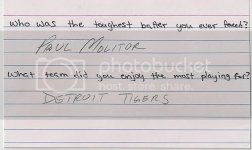 Who was the toughest batter you ever faced?
PAUL MOLITOR
photobucket
What team did you enjoy the most playing for?
DETROIT TIGERS